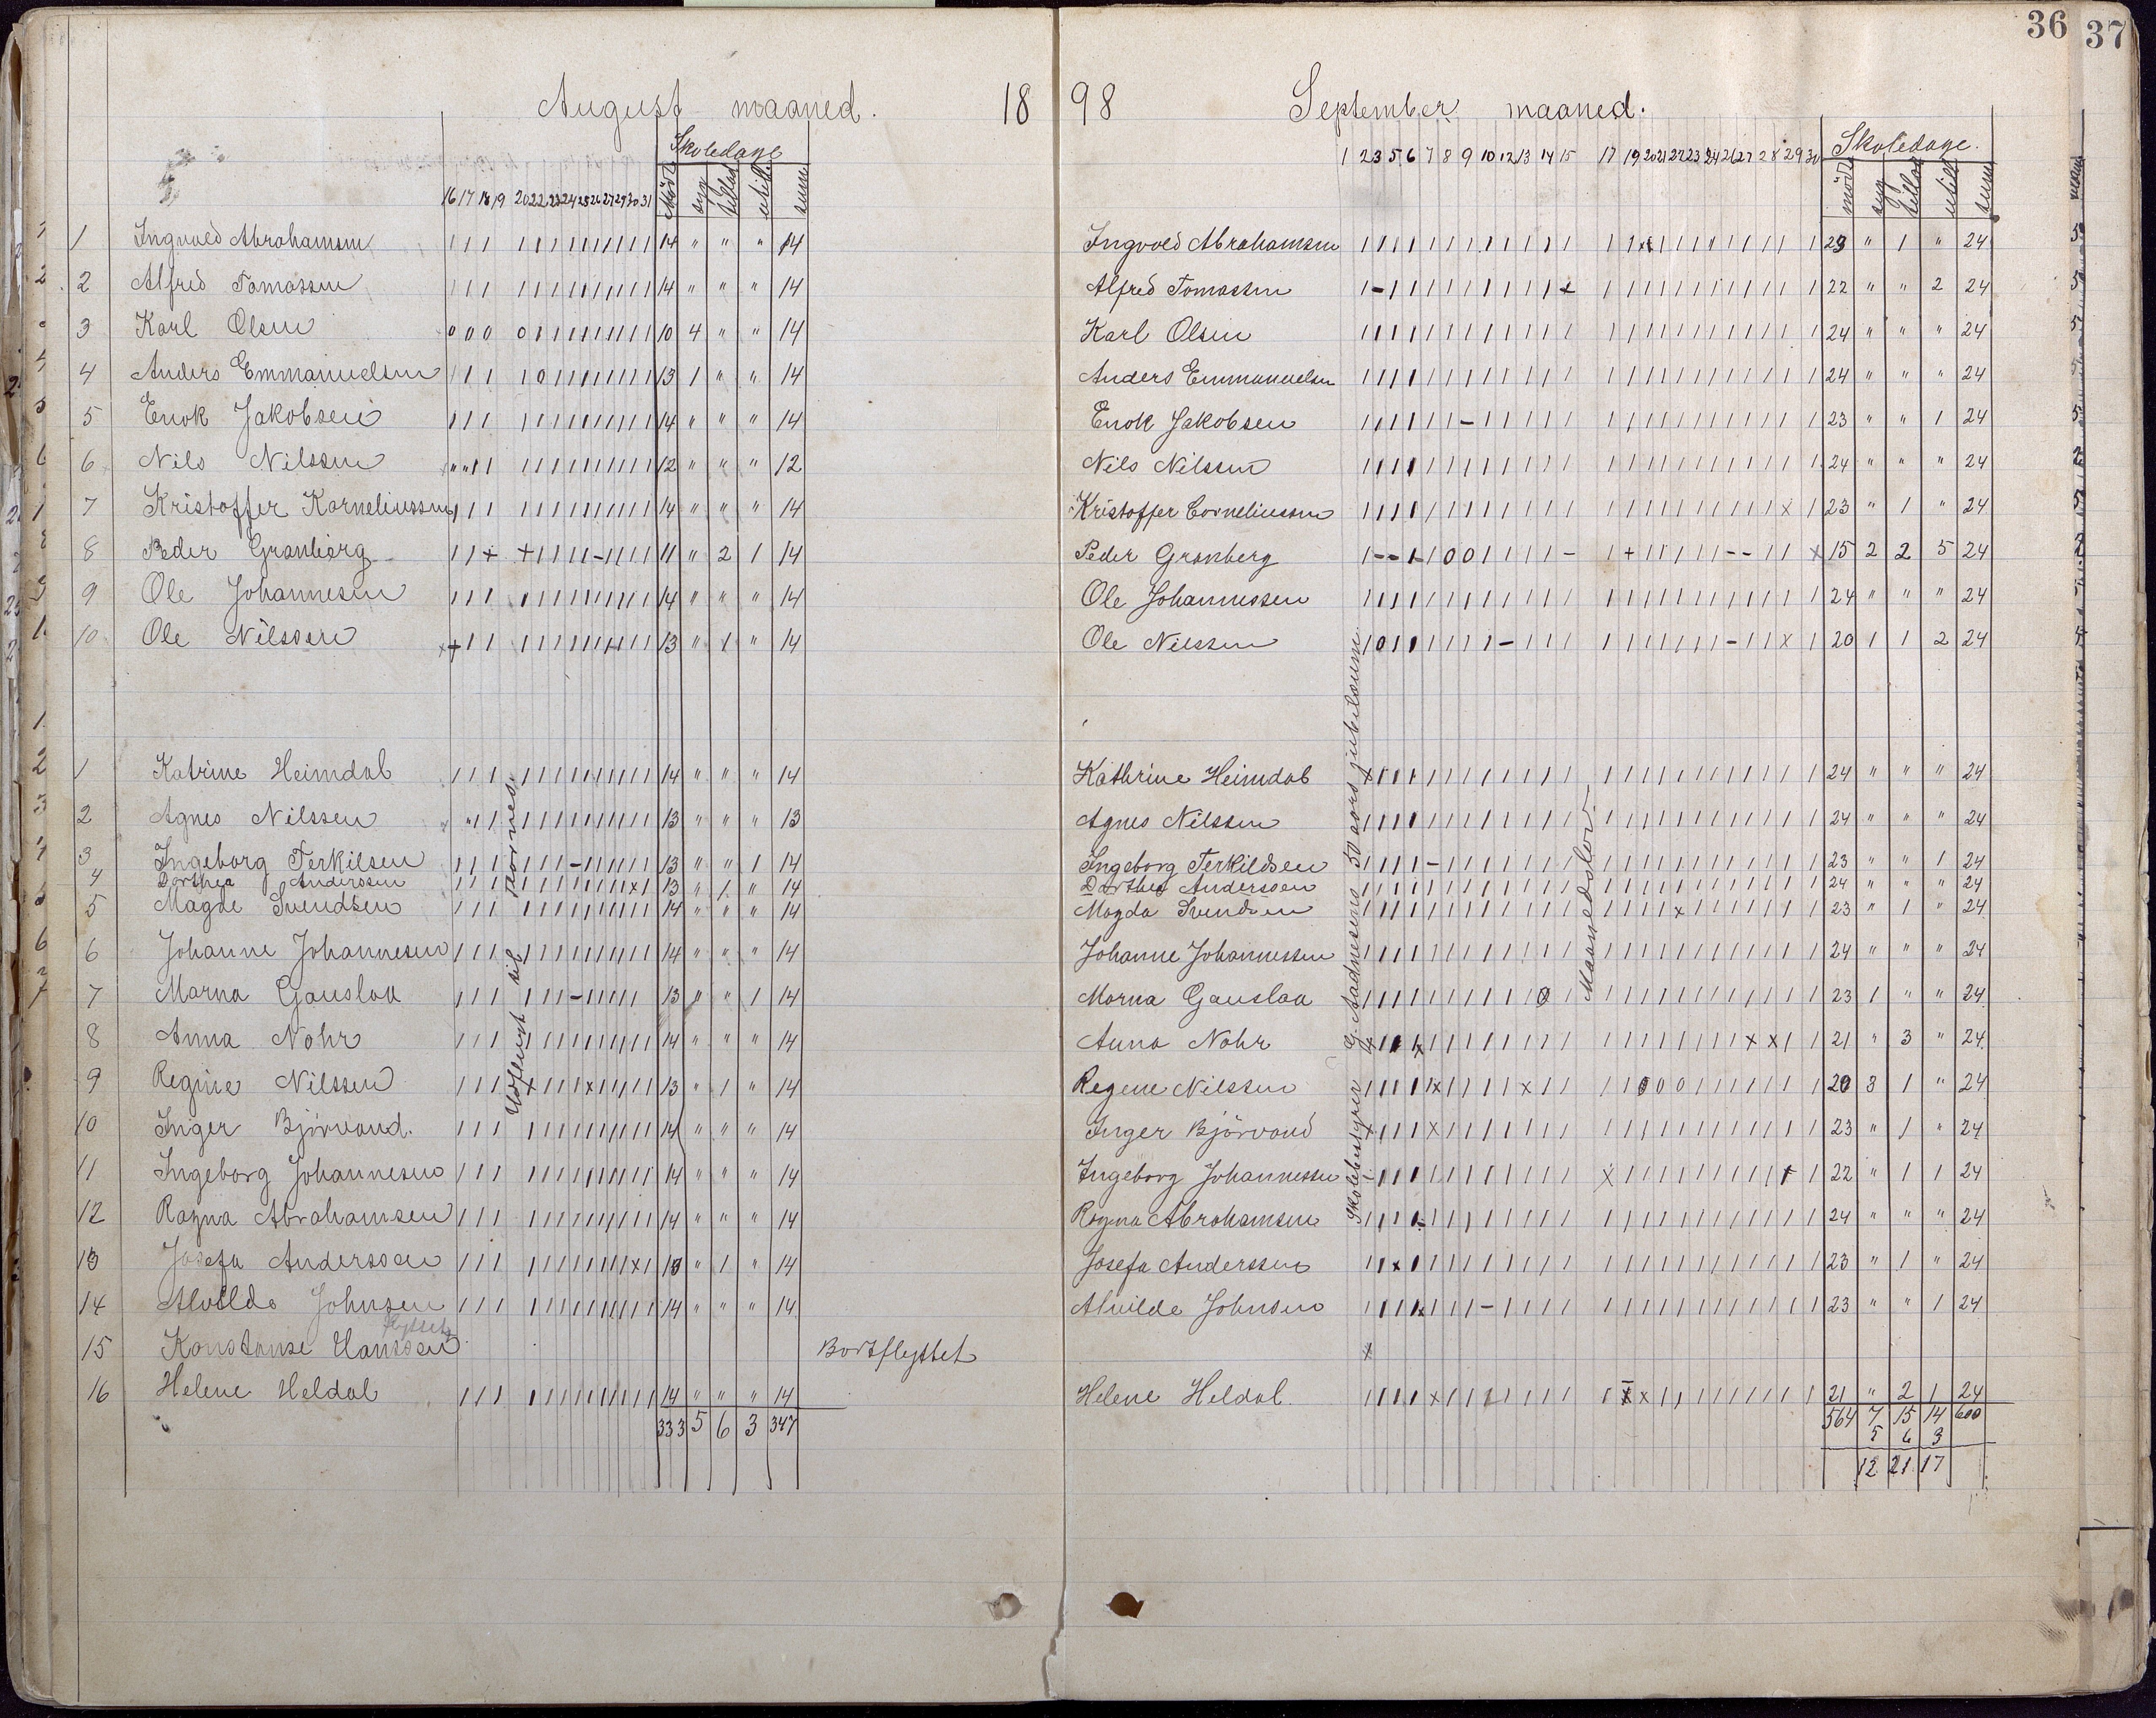 36 37
August maaned. 18
Skoledage
16 17 18 19 20 22 23 24 25 26 27 29 30 31 Mödt syg tillad. utill. sum
1 Ingvoed Abrahamsen 14 " " " 14
2 Alfred Tomassen 14 " " " 14
3 Karl Olsen 0 0 0 0 10 4 " " 14
4 Anders Emmanuelsen 13 1 " " 14
5 Enok Jakobsen 14 " " " 14
6 Nils Nilssen 12 " " " 12
7 Kristoffer Korneliussen 14 " " " 14
8 Peder Granberg 1 1 + + 1 1 1 1 - 1 1 1 1 11 " 2 1 14
9 Ole Johannesen 14 " " " 14
10 Ole Nilssen 13 " 1 " 14
1 Katrine Heimdal 14 " " " 14
2 Agnes Nilssen 13 " " " 13
3 Ingeborg Terkilsen 13 " " 1 14
4 Dorthea Anderssen 13 " 1 " 14
5 Magde Svendsen 14 " " " 14
6 Johanne Johannesen 14 " " " 14
7 Marna Gauslaa 13 " " 1 14
8 Anna Nohr 14 " " " 14
9 Regine Nilssen 13 " 1 " 14
10 Inger Bjørvand. 14 " " " 14
11 Ingeborg Johannesen 14 " " " 14
12 Ragna Abrahamsen 14 " " " 14
13 Josefa Anderssen 13 " 1 " 14
14 Alvilde Johnsen 14 " " " 14
flyttet
15 Konstanse Hanssen Bortflyttet
16 Helene Heldal 14 " " " 14
333 5 6 3 347
Udflugt til
98 September maaned.
Skoledage.
1 2 3 5 6 7 8 9 10 12 13 14 15 17 19 20 21 22 23 24 26 27 28 29 30 mödt syg tillad utill sum
Ingvoed Abrahamsen 23 " 1 " 24
Alfred Tomassen 22 " " 2 24
Karl Olsen 24 " " " 24
Anders Emmanuelsen 24 " " " 24
Enok Jakobsen 23 " " 1 24
Nils Nilssen 24 " " " 24
Kristoffer Corneliussen 23 " 1 " 24
Peder Granberg 15 2 2 5 24
Ole Johannessen 24 " " " 24
Ole Nilssen 20 1 1 2 24
Kathrine Heimdal 24 " " " 24
Agnes Nilssen 24 " " " 24
Ingeborg Terkildsen 23 " " 1 24
Dorthea Anderssen 24 " " " 24
Magda Svendsen 23 " 1 " 24
Johanne Johannessen 24 " " " 24
Morna Gauslaa 23 1 " " 24
Anna Nohr 21 " 3 " 24
Regine Nilssen 20 3 1 " 24
Inger Bjørvand 23 " 1 " 24
Ingeborg Johannessen 22 " 1 1 24
Ragna Abrahamsen 24 " " " 24
Josefa Anderssen 23 " 1 " 24
Alvilde Johnsen 23 " " 1 24
x
Helene Heldal. 21 " 2 1 24
564 7 15 14 600
5 6 3
12 21 17
Skolebestyrer G. Aadnesens 50 aars jubilæum.
Maanedslov.